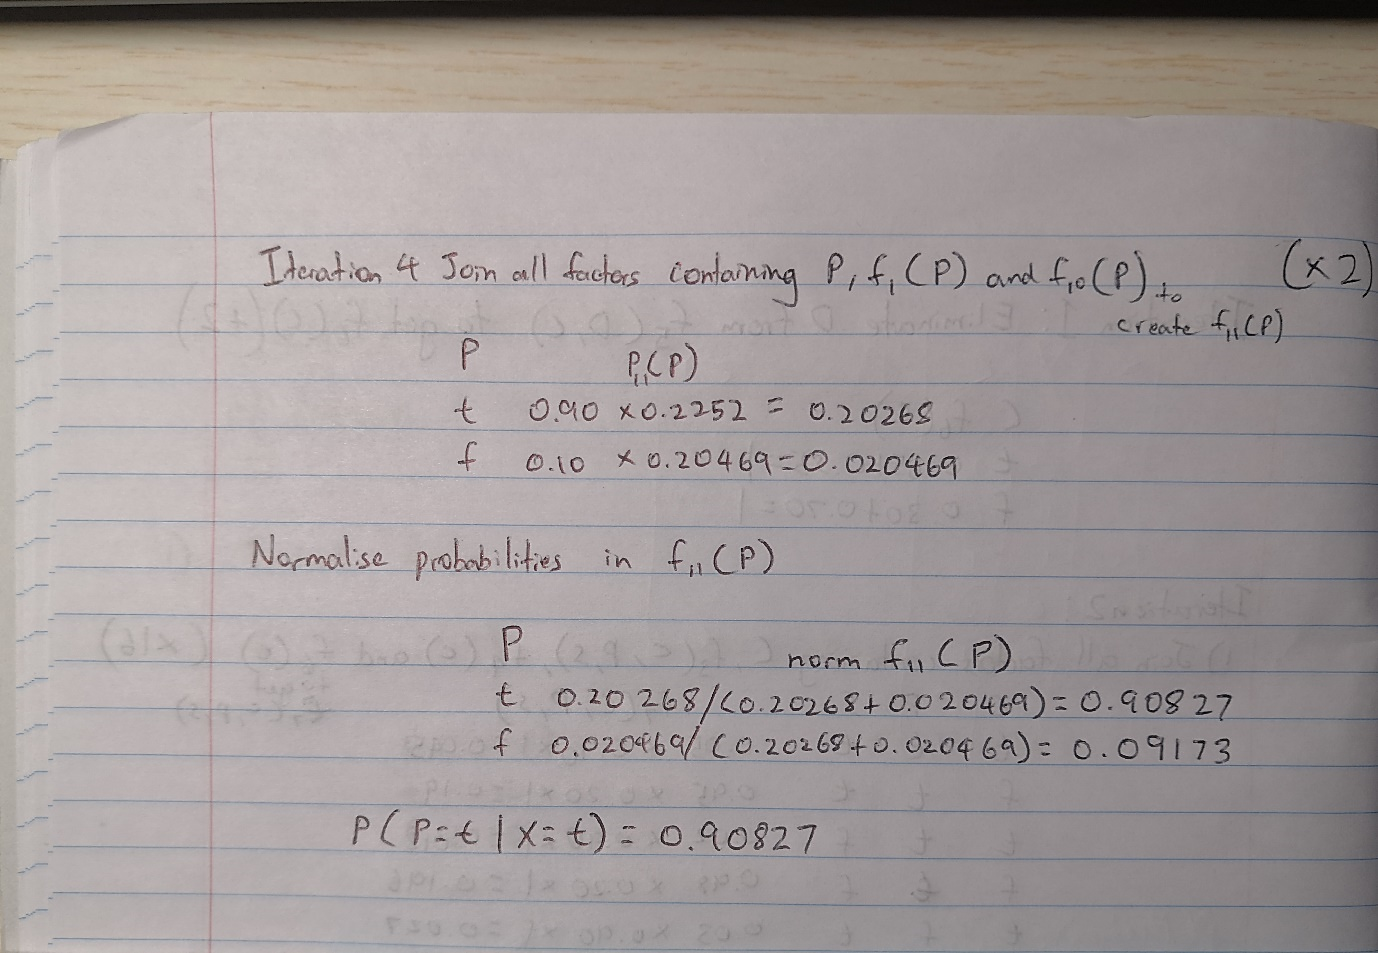 Iteration 4 Join all factors containing P, f₁(P) and f₁₀(P) to (x2)
create f₁₁(P)
P P₁₁(P)
t 0.90 x 0.2252 = 0.20268
f 0.10 x 0.20469 = 0.020469
Normalise probabilities in f₁₁(P)
P norm f₁₁(P)
t 0.20268/(0.20268+0.020469) = 0.90827
f 0.020469/(0.20268+0.020469) = 0.09173
P(P=t|X=t) = 0.90827